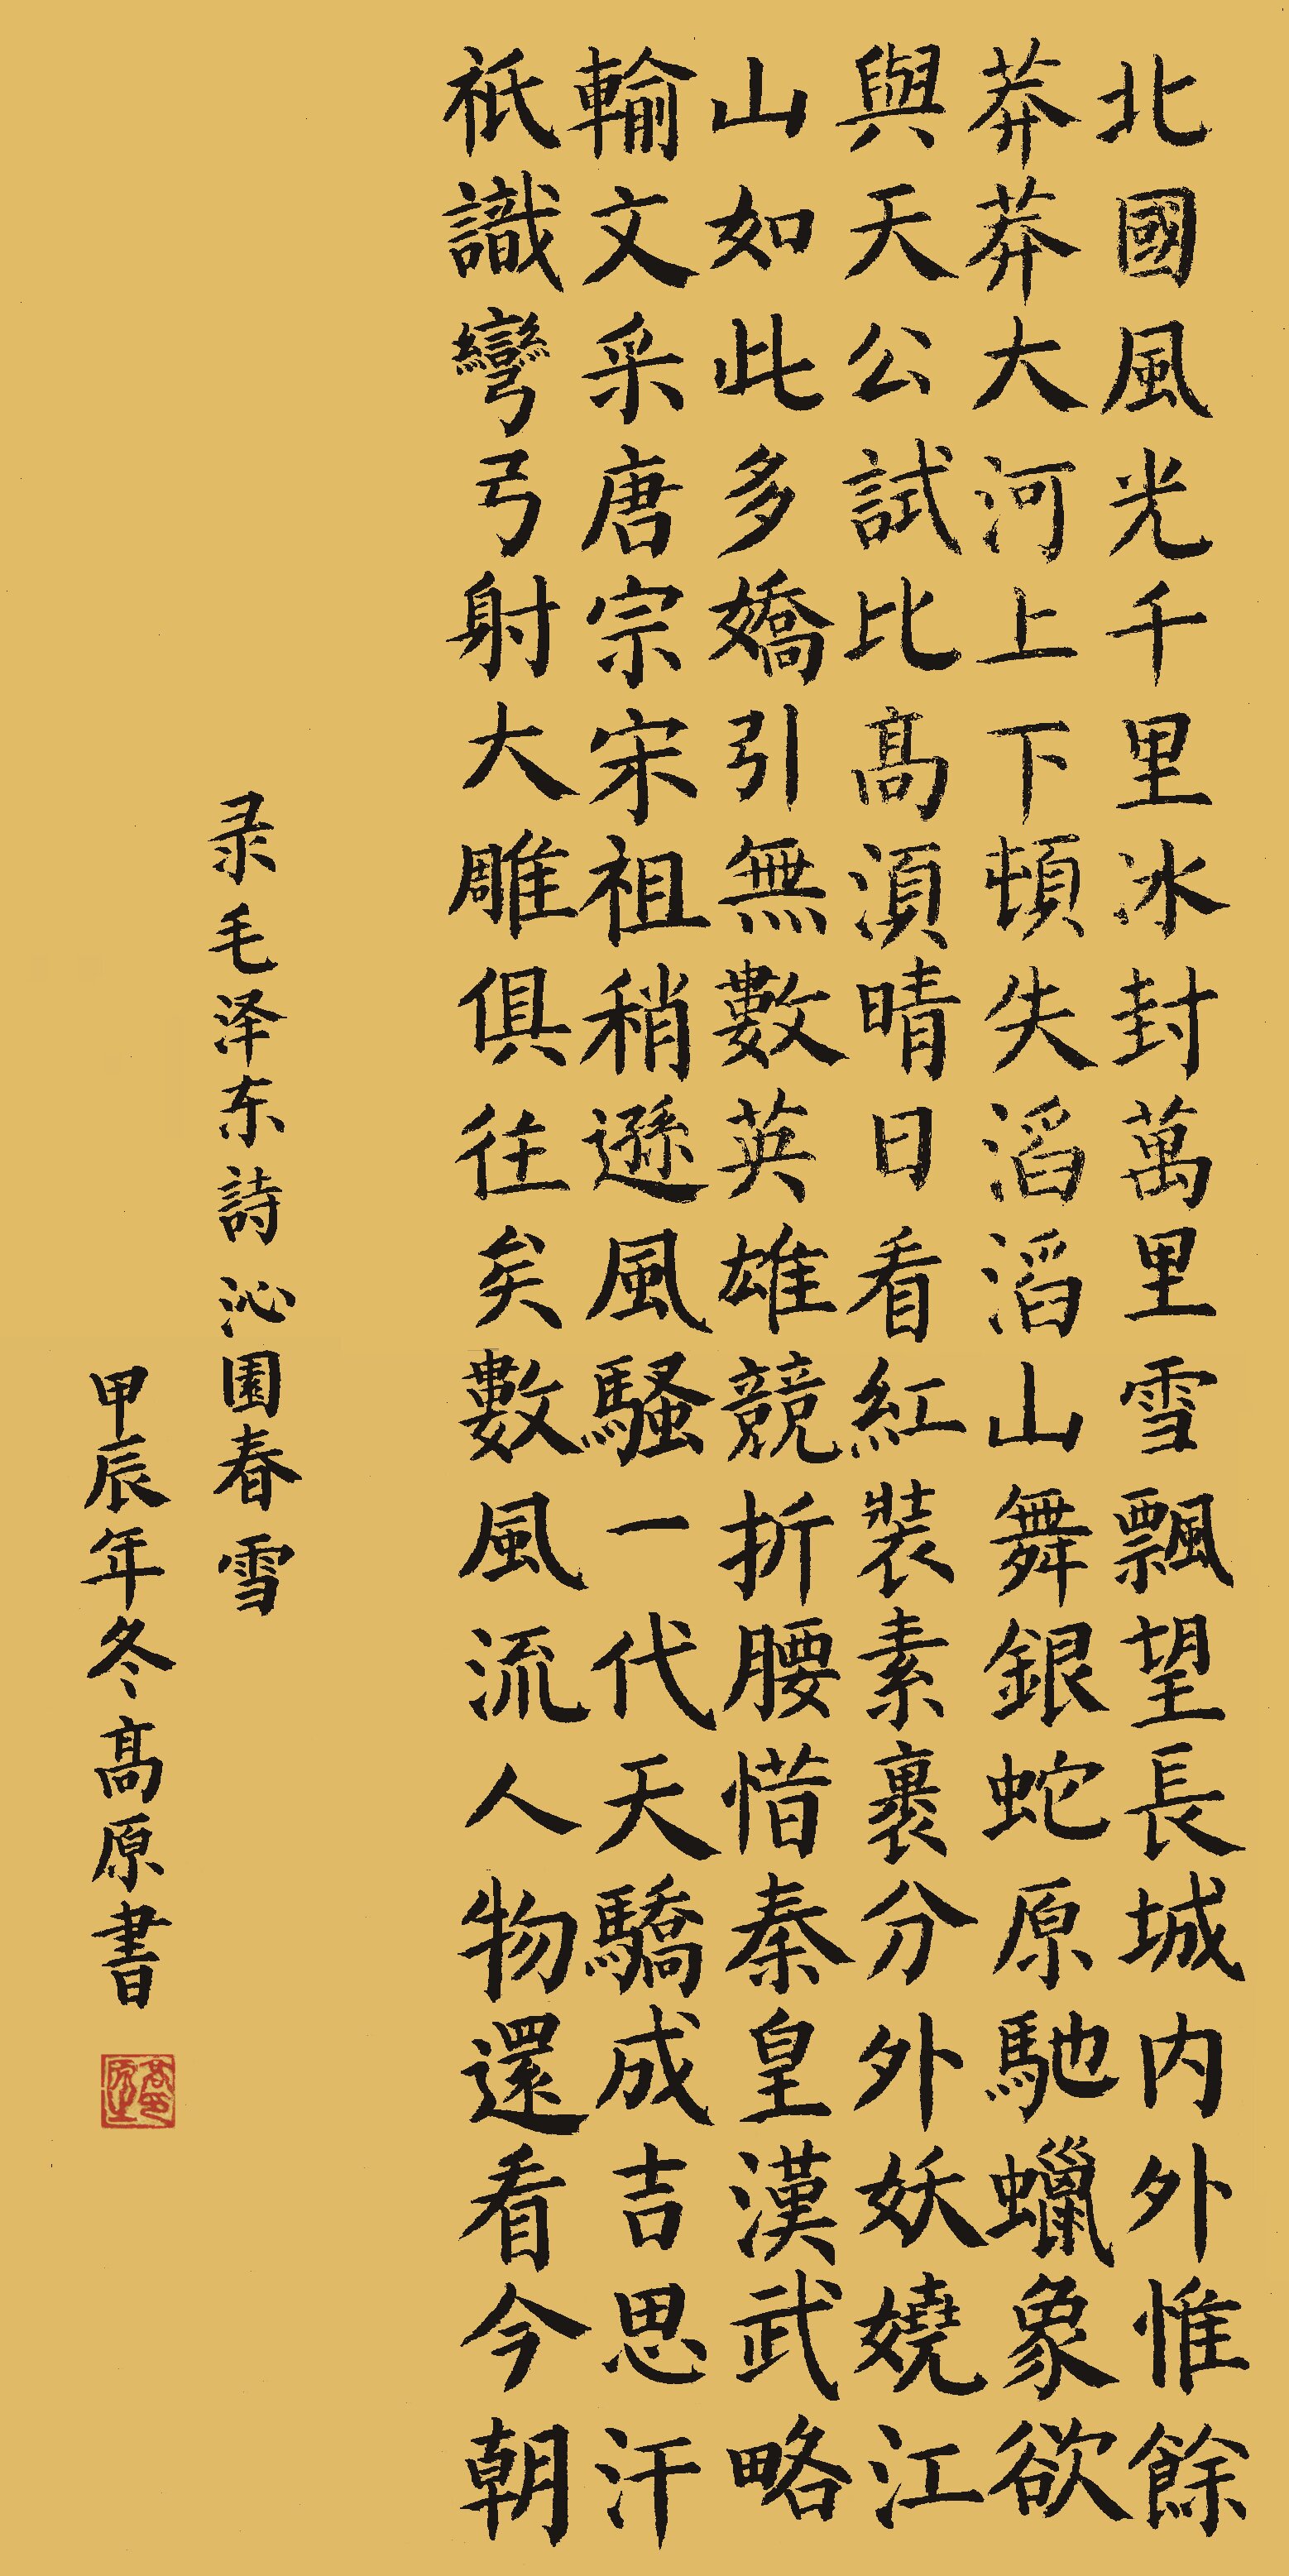 北國風光千里冰封萬里雪飄望長城内外惟餘
莽莽大河上下頓失滔滔山舞銀蛇原馳蠟象欲
與天公試比高須晴日看紅裝素裹分外妖嬈江
山如此多嬌引無數英雄競折腰惜秦皇漢武略
輸文采唐宗宋祖稍遜風騷一代天驕成吉思汗
祇識彎弓射大雕俱往矣數風流人物還看今朝
录毛泽东詩沁園春雪
甲辰年冬高原書